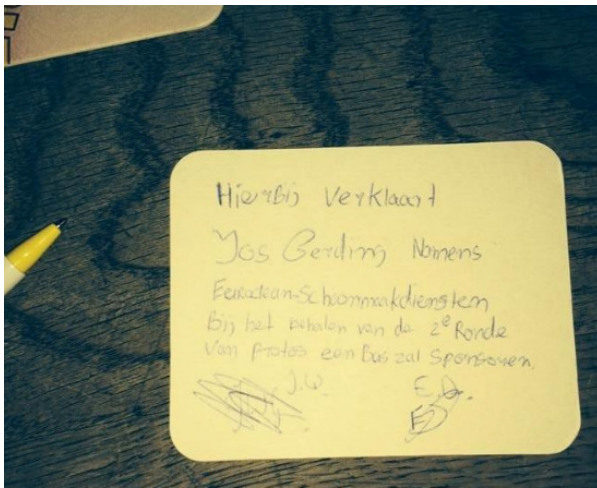 Hierbij Verklaart
Jos Gerding Namens
Euroclean-Schoonmaakdiensten
Bij het behalen van de 2e Ronde
van Protos een Bus zal Sponsoren.